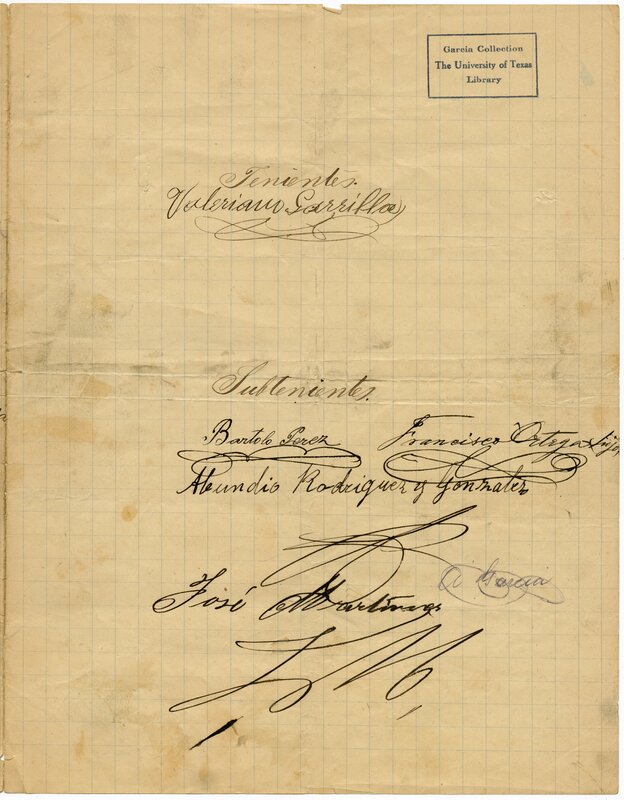 Garcia Collection
The University of Texas
Library
Tenientes.
Valeriano Garrilla
Subtenientes.
Bartolo Perez
Francisco Ortega hijo
Abundio Rodriguez y Gonzalez
A Garcia
José Martinez